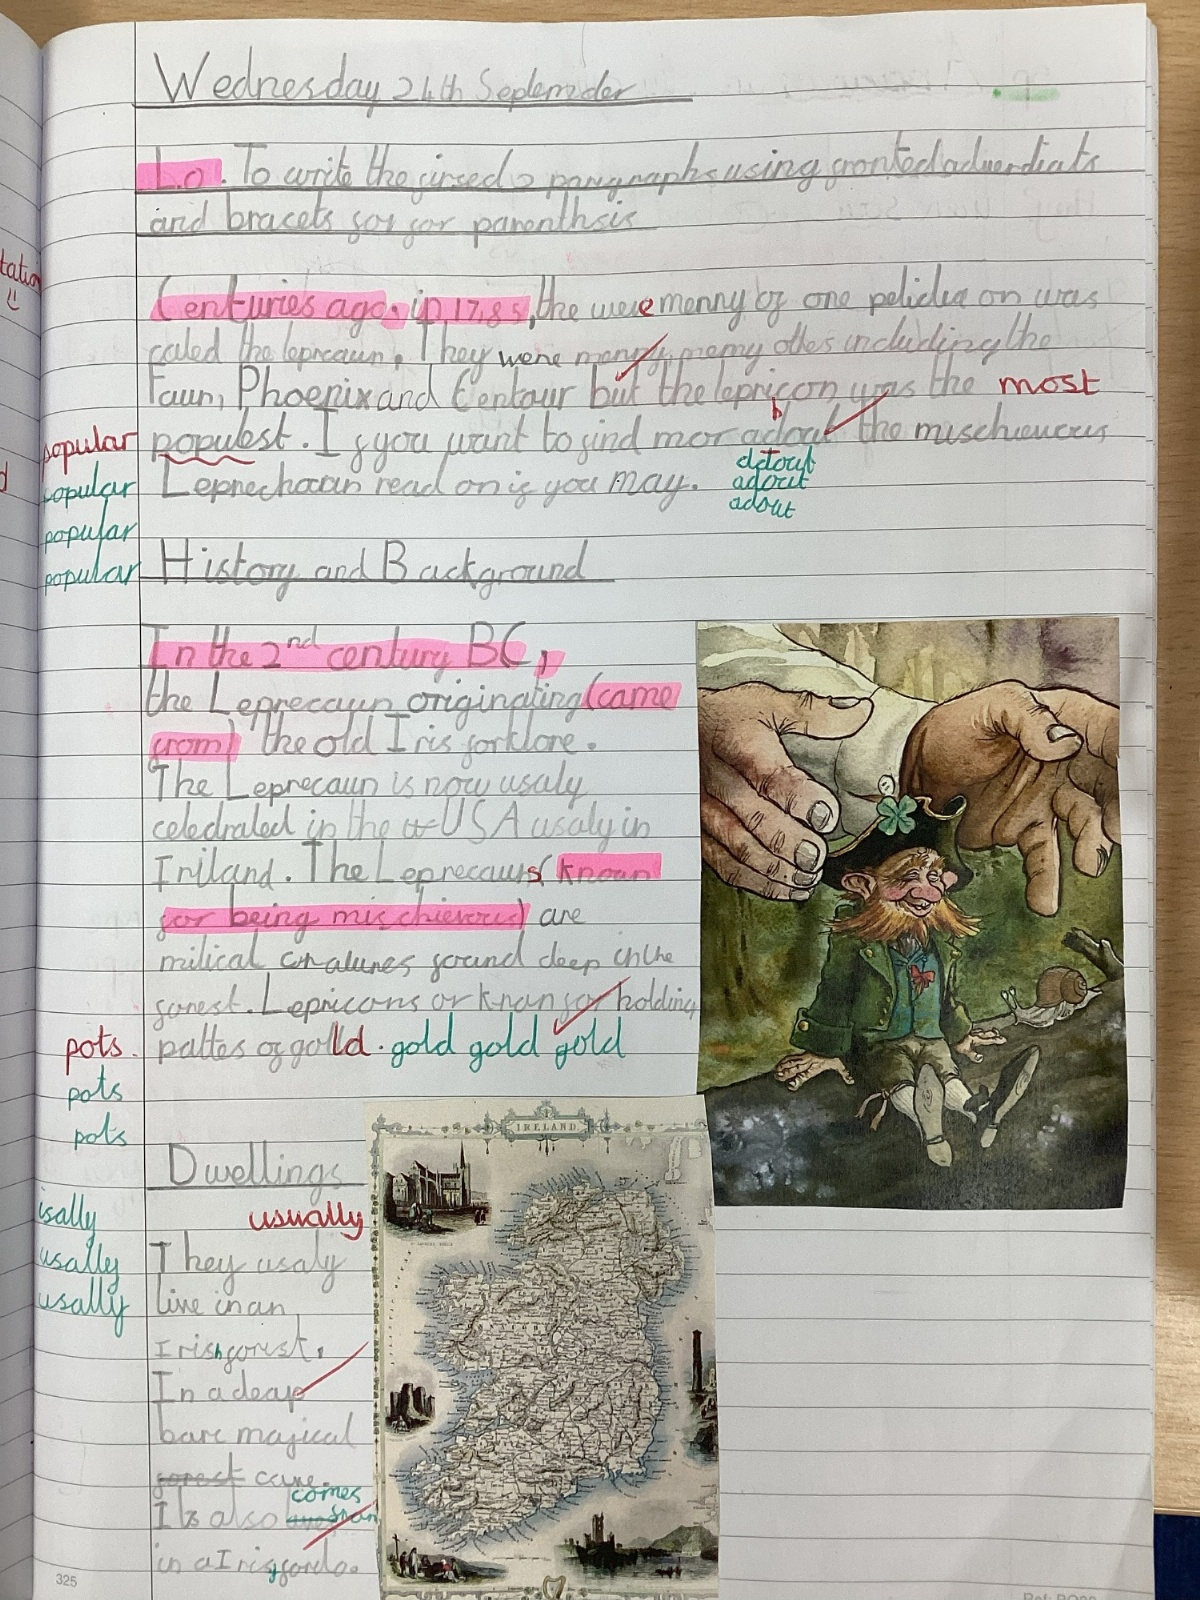 Wednesday 24th Septemder
L.o. To write the firsed 2 paragraphs using
and bracets for for parenthsis
tation
Centuries ago, in 1785, the were menny of one was
caled the leprecaun. They were menny memy othes including the
Faun, Phoenix and Centour but the lepricon was the most
popular populest. If you want to find mor adout b the mischievous
dtout
popular Leprechaun read on if you may. adout
adout
popular
popular History and Background
In the 2nd century BC,
the Leprecaun originating (came
from) the old Iris forklore.
The Leprecaun is now usaly
celedrated in the USA usaly in
Iriland. The Leprecauns (knoan
for being mischievous) are
mitical found deep in the
forest. Lepricons or knan for holding
pots. pattes of golld. gold gold gold
pots
pots
Dwellings
usally usually
usally They usaly
usally live in an
Irish forist.
In a deap
barc majical
forest cave.
comes
It's also
in a Irish
IRELAND
325